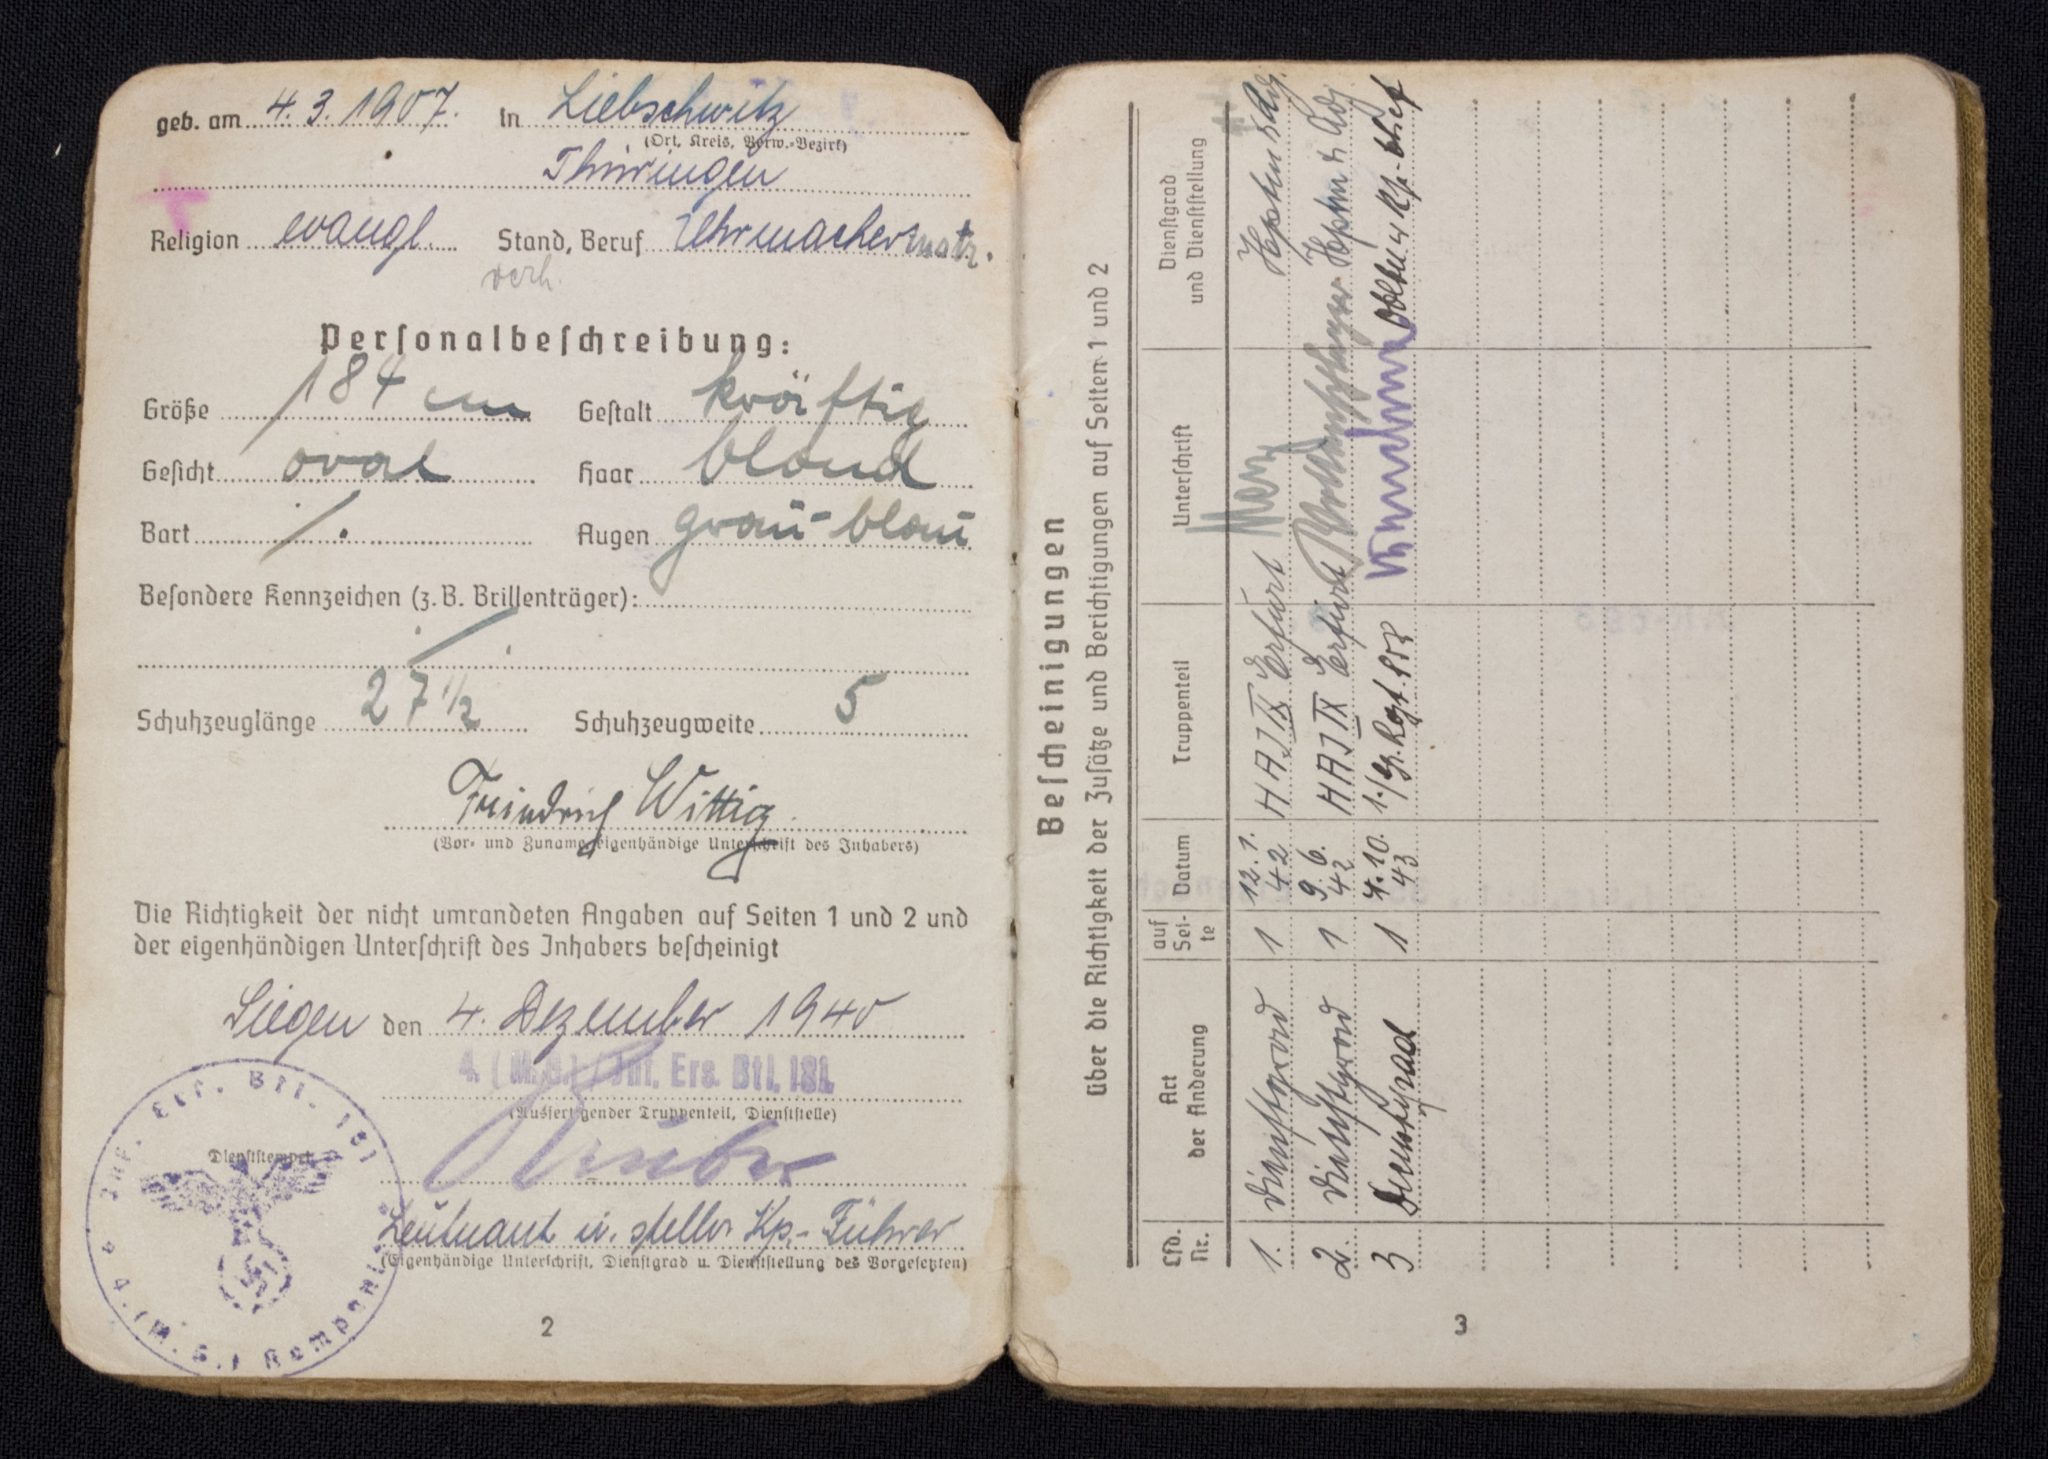 geb. am 4. 3. 1907. in Liebschwitz
(Ort, Kreis, Verw.-Bezirk)
Thüringen
Religion evangl. Stand, Beruf Uhrmachermstr.
verh.
Personalbeschreibung:
Größe 184 cm Gestalt kräftig
Gesicht oval Haar blond
Bart ./. Augen grau-blau
Besondere Kennzeichen (z. B. Brillenträger):
./.
Schuhzeuglänge 27 1/2 Schuhzeugweite 5
Friedrich Wittig
(Vor- und Zuname, eigenhändige Unterschrift des Inhabers)
Die Richtigkeit der nicht umrandeten Angaben auf Seiten 1 und 2 und
der eigenhändigen Unterschrift des Inhabers bescheinigt
Siegen den 4. Dezember 1940
4. (M.G.) / Inf. Ers. Btl. 181.
(Ausfertigender Truppenteil, Dienststelle)
Dienststempel
Leutnant u. stellv. Kp.-Führer
(Eigenhändige Unterschrift, Dienstgrad u. Dienststellung des Vorgesetzten)
Inf. Ers. Btl. 181
4. (M. G.) Kompanie
2
Bescheinigungen
über die Richtigkeit der Zusätze und Berichtigungen auf Seiten 1 und 2
Lfd. Nr. Art der Änderung auf Sei-te Datum Truppenteil Unterschrift Dienstgrad und Dienststellung
1. Dienstgrad 1 12. 1. 42 Erfurt Hptm u Adj.
2. Dienstgrad 1 9. 6. 42 Erfurt Hptm u Adj
3 Dienstgrad 1 4. 10. 43 1./Gr. Rgt. Obltn u Kp.-Chef
3